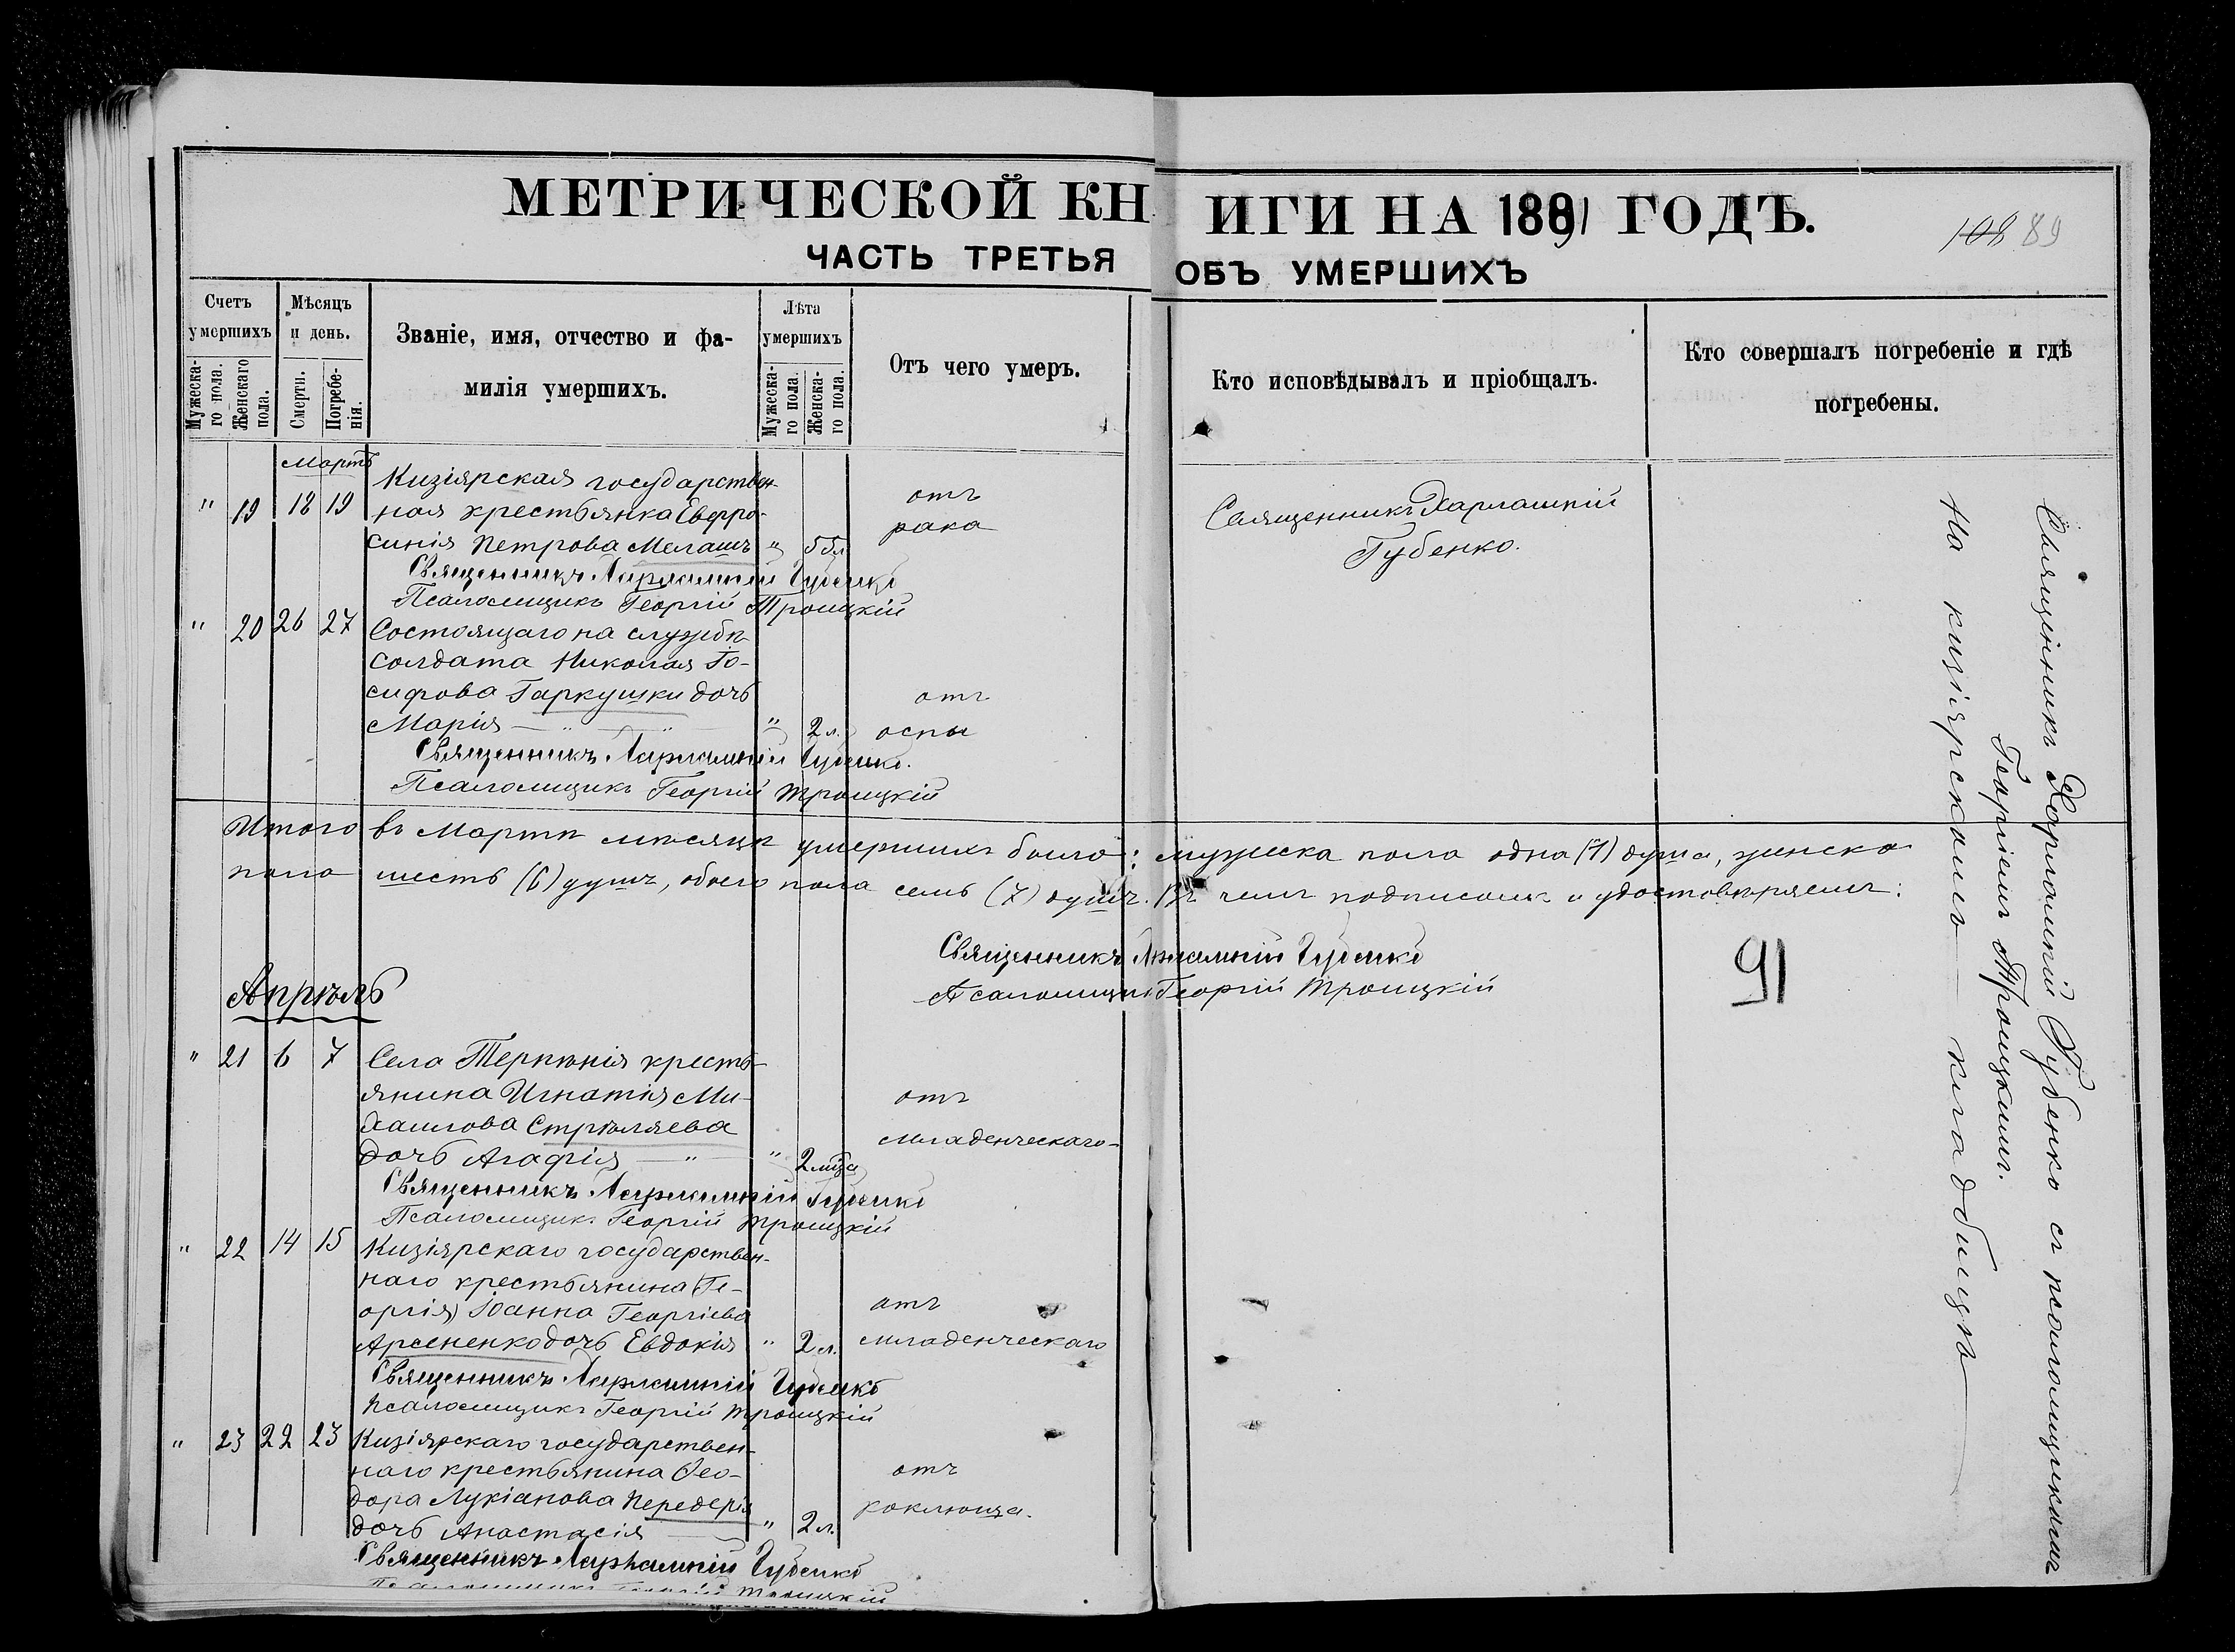 МЕТРИЧЕСКОЙ КНИГИ НА 1891 ГОДЪ.
108 89
ЧАСТЬ ТРЕТЬЯ ОБЪ УМЕРШИХЪ
Счетъ умершихъ
Мужескаго пола.
Женскаго пола.
Мѣсяцъ и день.
Смерти.
Погребенія.
Званіе, имя, отчество и фамилія умершихъ.
Лѣта умершихъ
Мужескаго пола.
Женскаго пола.
Отъ чего умеръ.
Кто исповѣдывалъ и пріобщалъ.
Кто совершалъ погребеніе и гдѣ погребены.
Мартъ
" 19 18 19 Кизіярская государствен-
ная крестьянка Евфро-
синія Петрова Мелашъ "
отъ
рака
Священникъ Харлампій
Губенко.
Священникъ Харлампій Губенко
Псаломщикъ Георгій Троицкій
" 20 26 27 Состоящаго на службѣ
солдата Николая Іо-
сифова Гаркушки дочь
Марія " 2 л.
отъ
оспы
Священникъ Харлампій Губенко.
Псаломщикъ Георгій Троицкій
Итого въ Мартѣ мѣсяцѣ умершихъ было: мужеска пола одна (1) душа, женска
пола шесть (6) душъ, обоего пола семь (7) душъ. Въ чемъ подписомъ и удостовѣряемъ:
Священникъ Харлампій Губенко
Псаломщикъ Георгій Троицкій
91
Апрѣль
" 21 6 7 Села Терпѣнія кресть-
янина Игнатія Ми-
хаилова Стрѣляева
дочь Агафія " " 2 мѣса
отъ
младенческаго
Священникъ Харлампій Губенко
Псаломщикъ Георгій Троицкій
" 22 14 15 Кизіярскаго государствен-
наго крестьянина (Ге-
оргія) Іоанна Георгіева
Арсененко дочь Евдокія " 2 л.
отъ
младенческаго
Священникъ Харлампій Губенко
Псаломщикъ Георгій Троицкій
" 23 22 23 Кизіярскаго государствен-
наго крестьянина Ѳео-
дора Лукіанова Передерія
дочь Анастасія " 2 л.
отъ
коклюша.
Священникъ Харлампій Губенко
Псаломщикъ Георгій Троицкій
Священникъ Харлампій Губенко съ псаломщикомъ
Георгіемъ Троицкимъ.
На кизіярскомъ кладбищѣ